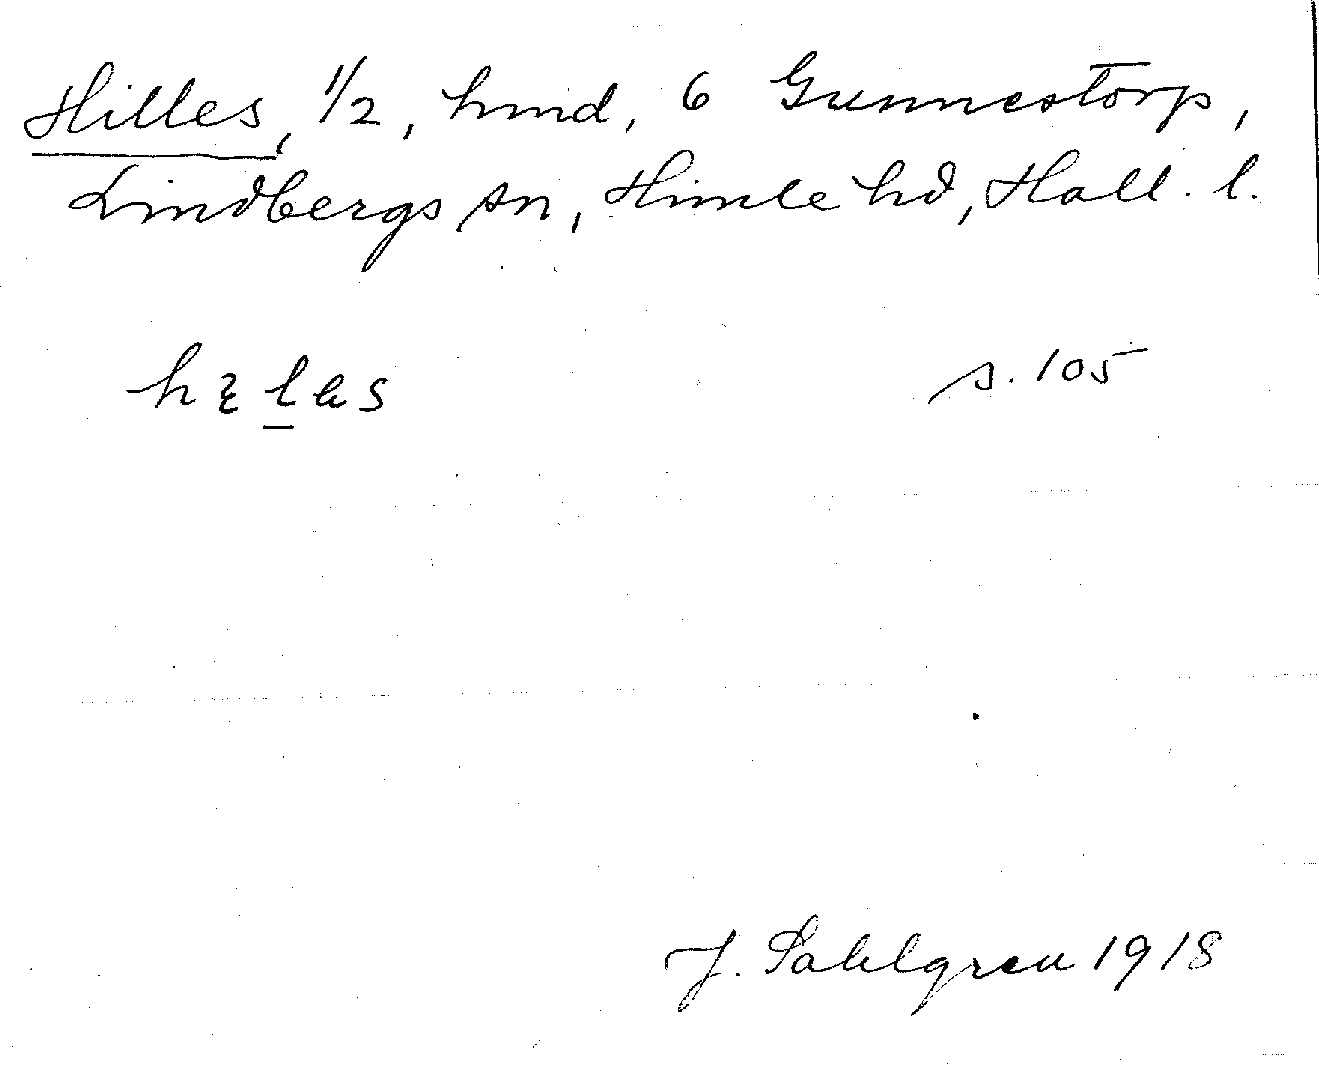 Hilles, 1/2, hmd, 6 Gunnestorp,
Lindbergs sn, Himle hd, Hall. l.
s. 105
J. Sahlgren 1918